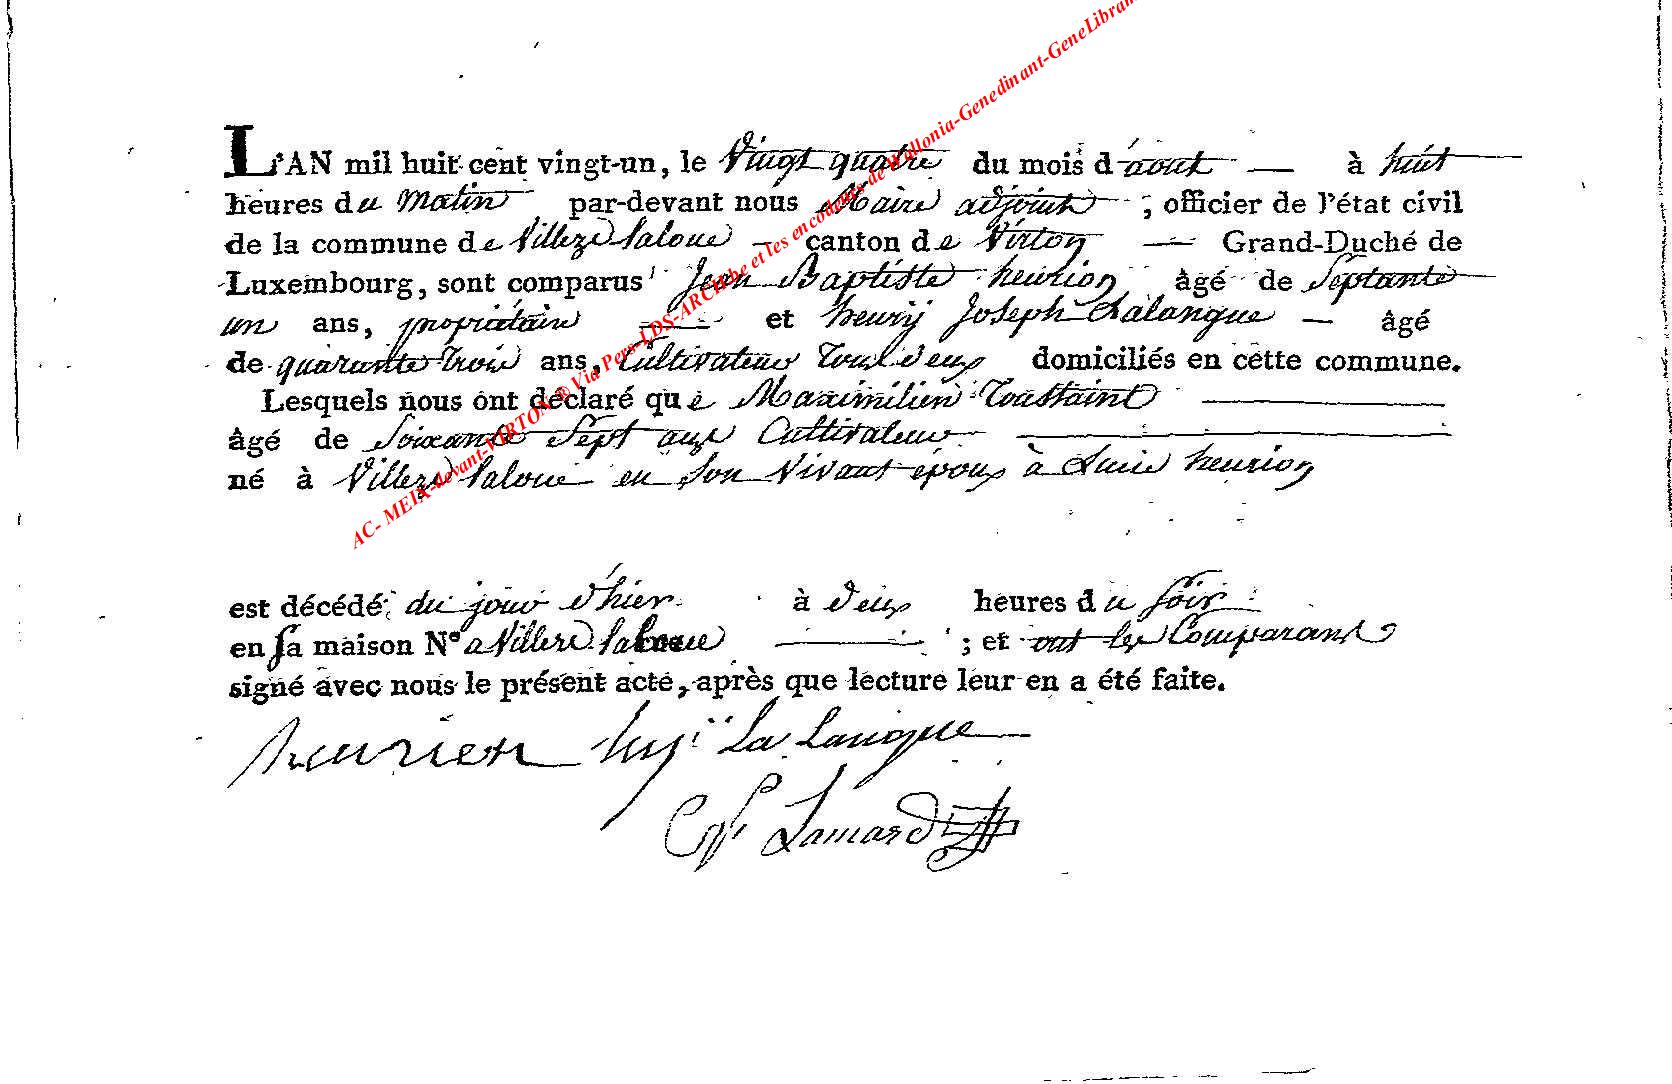 L'AN mil huit cent vingt-un, le Vingt quatre du mois d'aout à huit
heures du Matin par-devant nous Maire adjoint ; officier de l'état civil
de la commune de Villeze laloue canton de Virton Grand-Duché de
Luxembourg, sont comparus Jean Baptiste heurion âgé de Septante
un ans, propriétaire et henry Joseph Lalangue âgé
de quarante trois ans, Cultivateur Tous deux domiciliés en cette commune.
Lesquels nous ont déclaré que Maximilien Toustaint
âgé de Soixante Sept ans Cultivateur
né à Villeze laloue en Son Vivant époux à Lucie heurion
est décédé du jour d'hier à deux heures du soir
en sa maison N° a Villeze laloue ; et ont les Comparans
signé avec nous le présent acte, après que lecture leur en a été faite.
heurion hry La Langue
Lamard
AC- MEIX-devant-VIRTON © Via Pers-LDS-ARCH.be et les encodeurs de Wallonia-Genedinant-GeneLibran